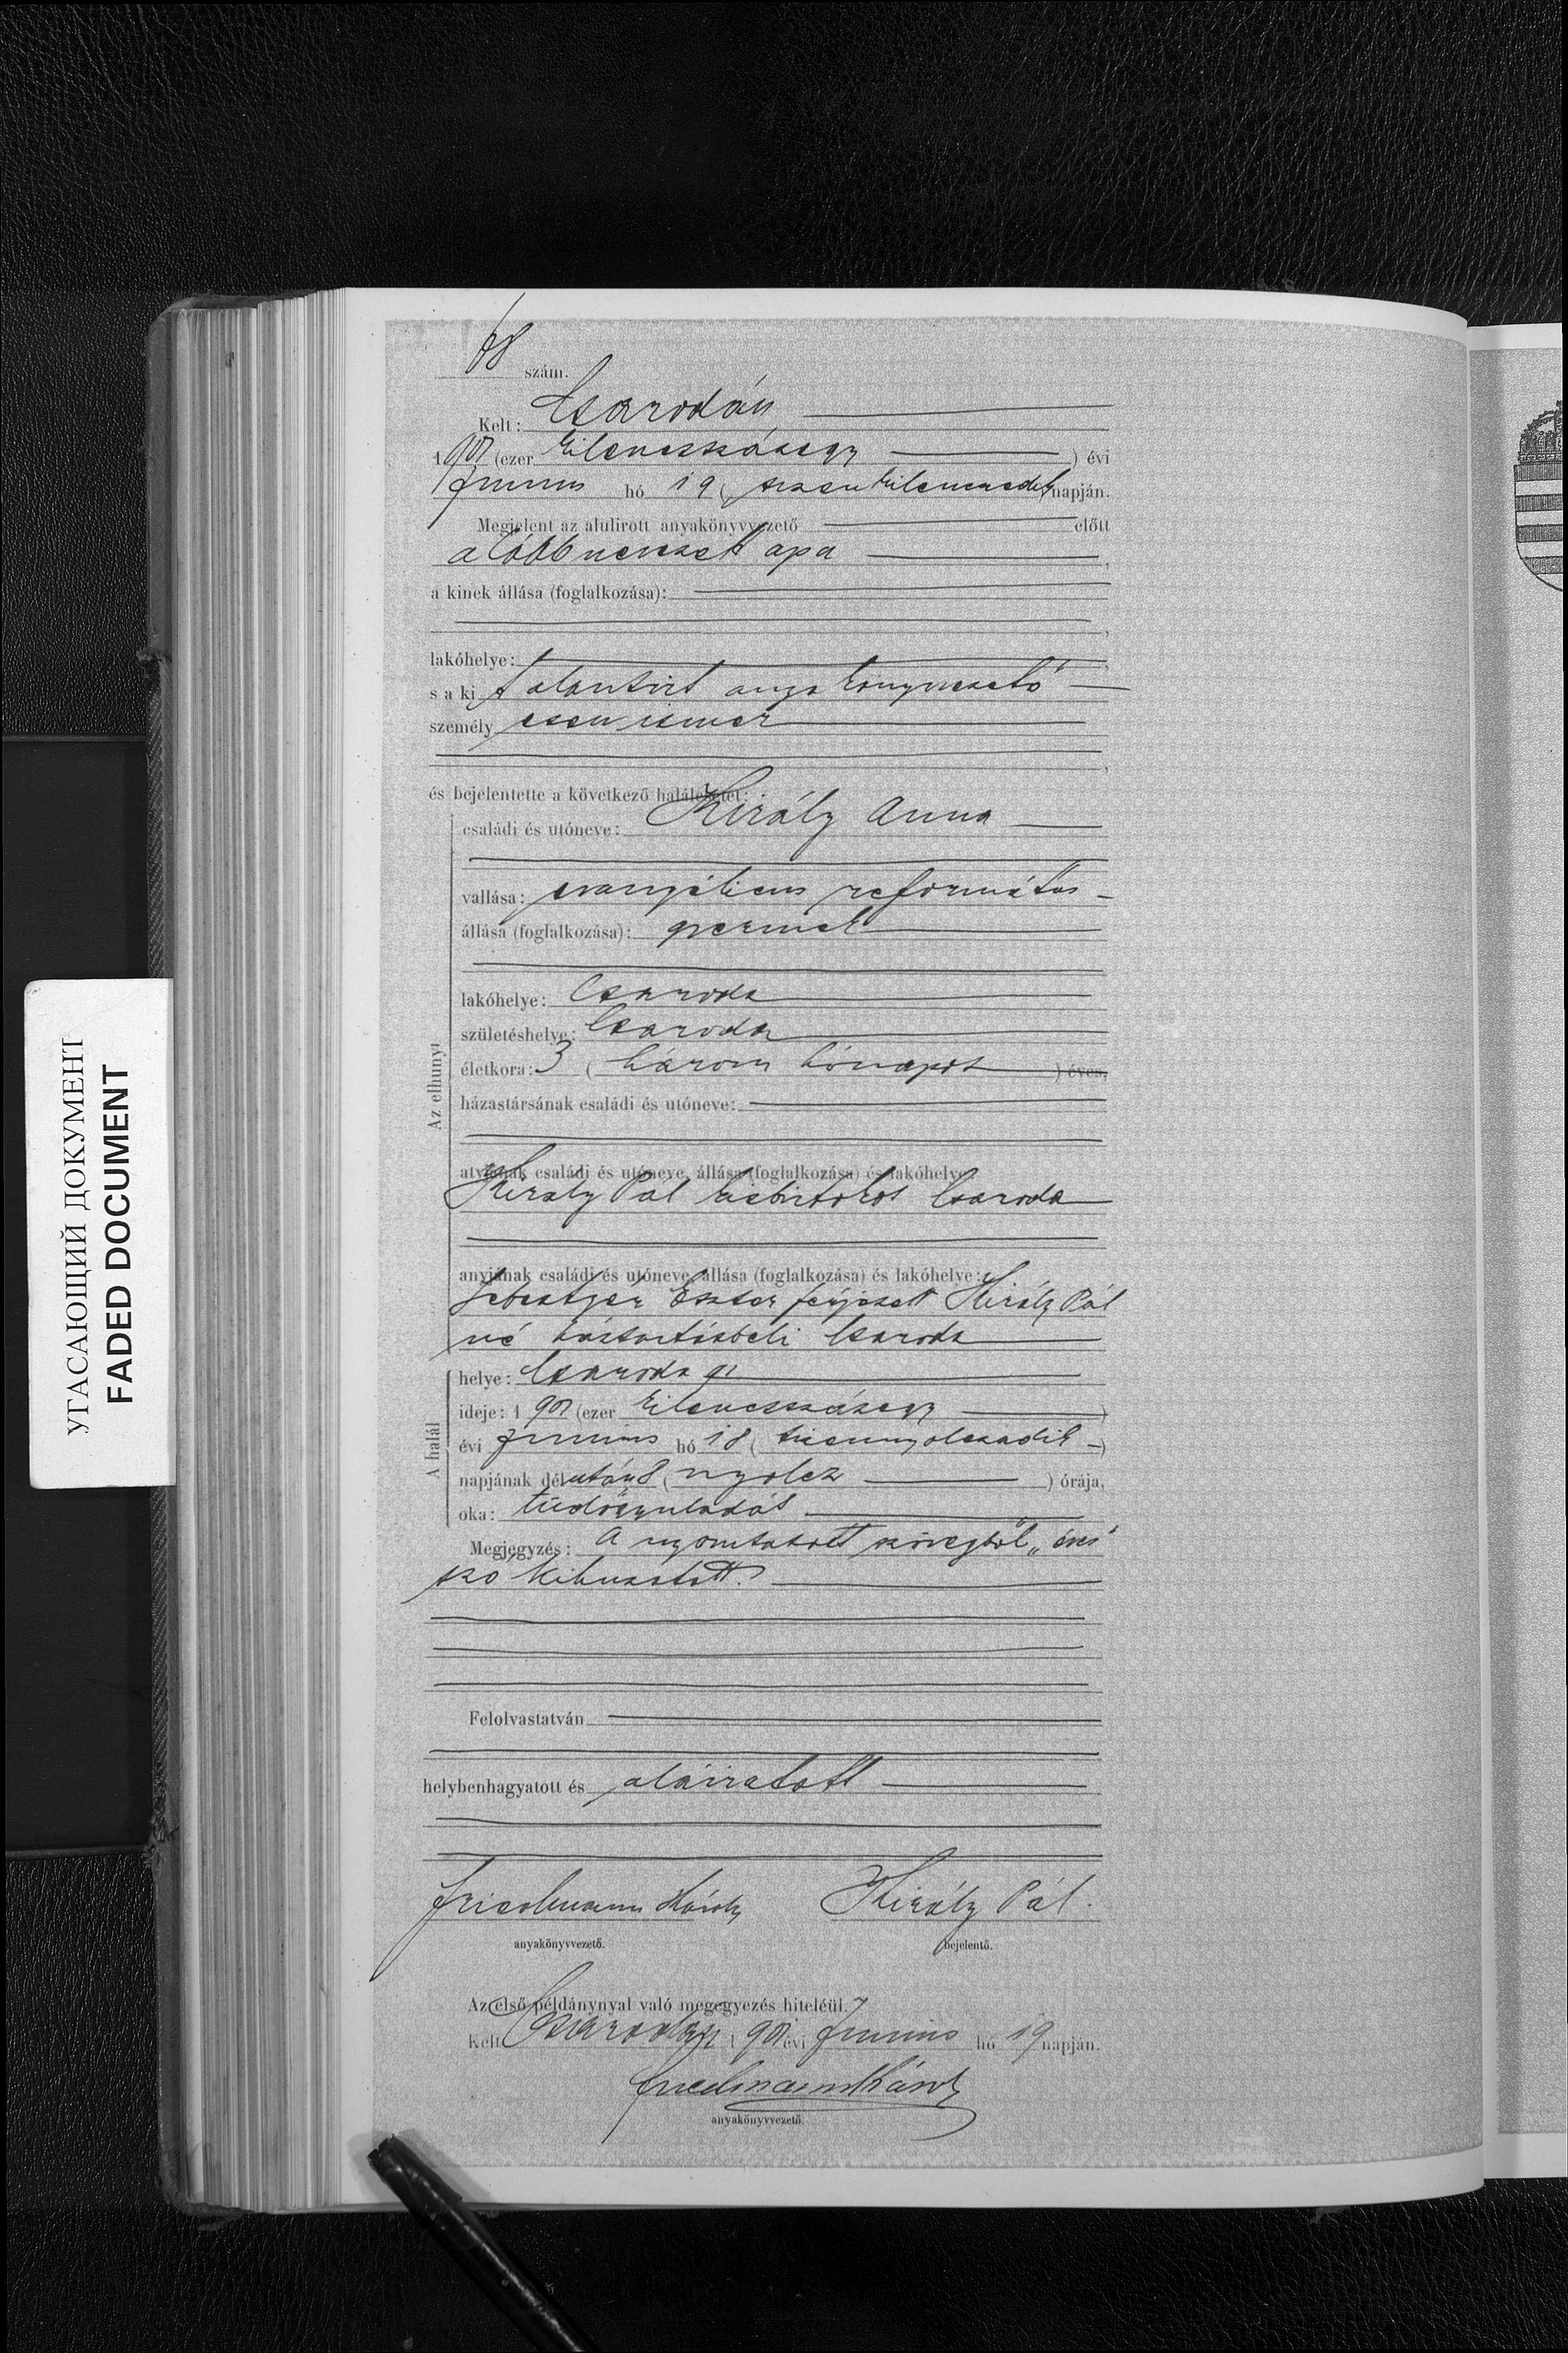 68 szám.
Kelt: Csarodán
1901 (ezer kilenczszázegy ) évi
Junius hó 19 (tizenkilenczedik) napján.
Megjelent az alulirott anyakönyvvezető előtt
alább nevezett apa ,
a kinek állása (foglalkozása):
,
lakóhelye: ,
s a ki t alantirt anyakönyvvezető
személyesen ismer
,
és bejelentette a következő halálesetet:
Az elhunyt
családi és utóneve: Király Anna
vallása: evangélicus református
állása (foglalkozása): gyermek
lakóhelye: Csaroda
születéshelye: Csaroda
életkora: 3 ( három hónapos ) éves,
házastársának családi és utóneve:
atyjának családi és utóneve, állása (foglalkozása) és lakóhelye:
Király Pál kisbirtokos Csaroda
anyjának családi és utóneve, állása (foglalkozása) és lakóhelye:
Sebestyén Eszter férjezett Király Pál
né háztartásbeli Csaroda
A halál
helye: Csaroda
ideje: 1901 (ezer kilenczszázegy )
évi Junius hó 18 (tizennyolczadik )
napjának délután 8 ( nyolcz ) órája,
oka: tüdőgyuladás
Megjegyzés: A nyomtatott szövegből „éves"
szó kihuzatott.
Felolvastatván
helybenhagyatott és aláiratott
Friedmann Károly Király Pál.
anyakönyvvezető. bejelentő.
Az első példánynyal való megegyezés hiteléül.
Kelt Csarodán 1901 évi Junius hó 19 napján.
Friedmann Károly
anyakönyvvezető.
УГАСАЮЩИЙ ДОКУМЕНТ
FADED DOCUMENT